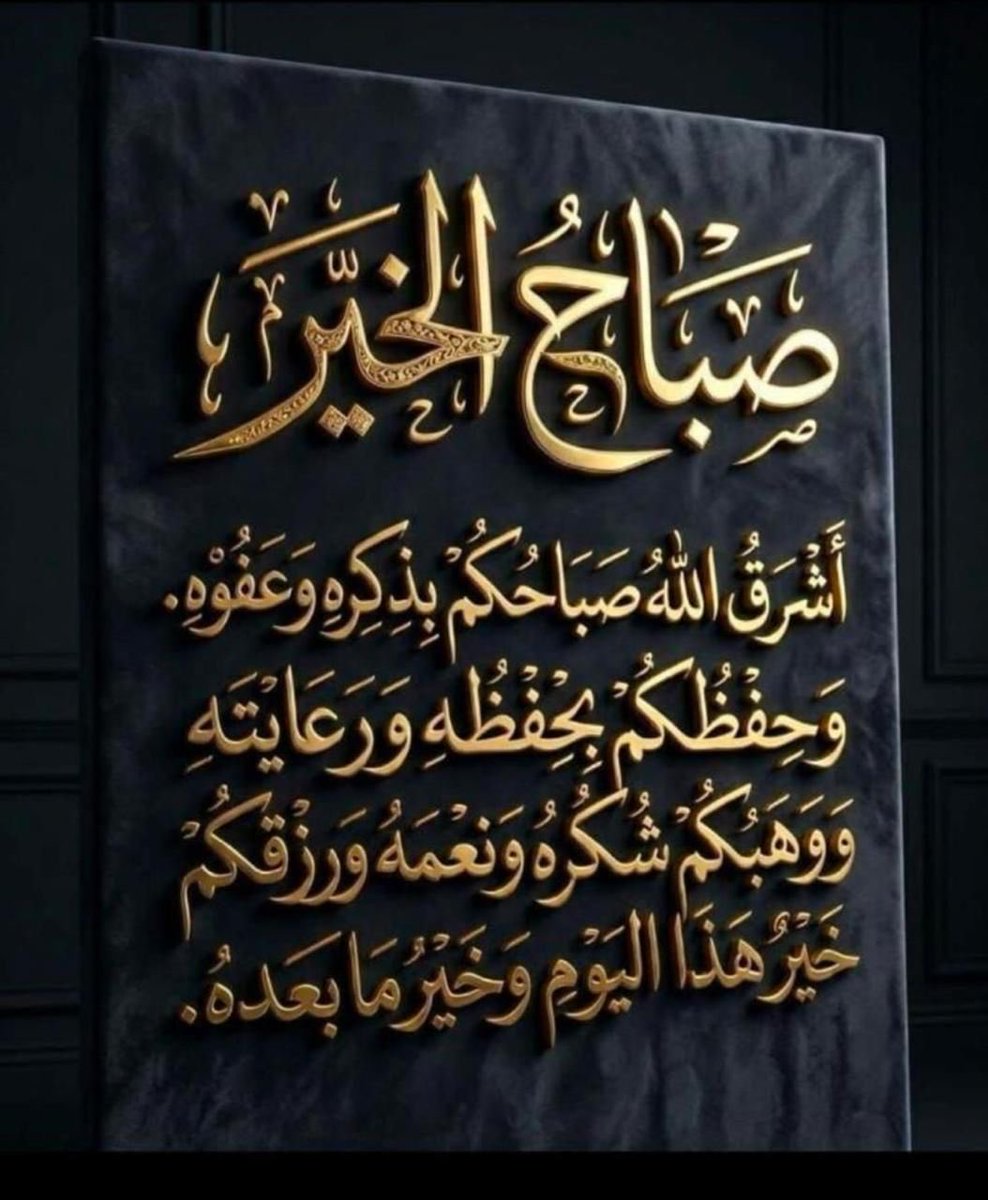 صَبَاحُ الخَيَّر
أَشْرَقُ اللهُ صَبَاحُكُمْ بِذِكِرِهِ وَعَفُوْهِ.
وَحِفْظُكُمْ بِحْفْظُهِ وَرَعَايْتَهِ
وَوَهَبُكُمْ شُكُرُه وَنعْمَهُ وَرزْقكُمْ
خَيْرُ هَذَا اليَوْمِ وَخَيْرُ مَا بعَدهُ.